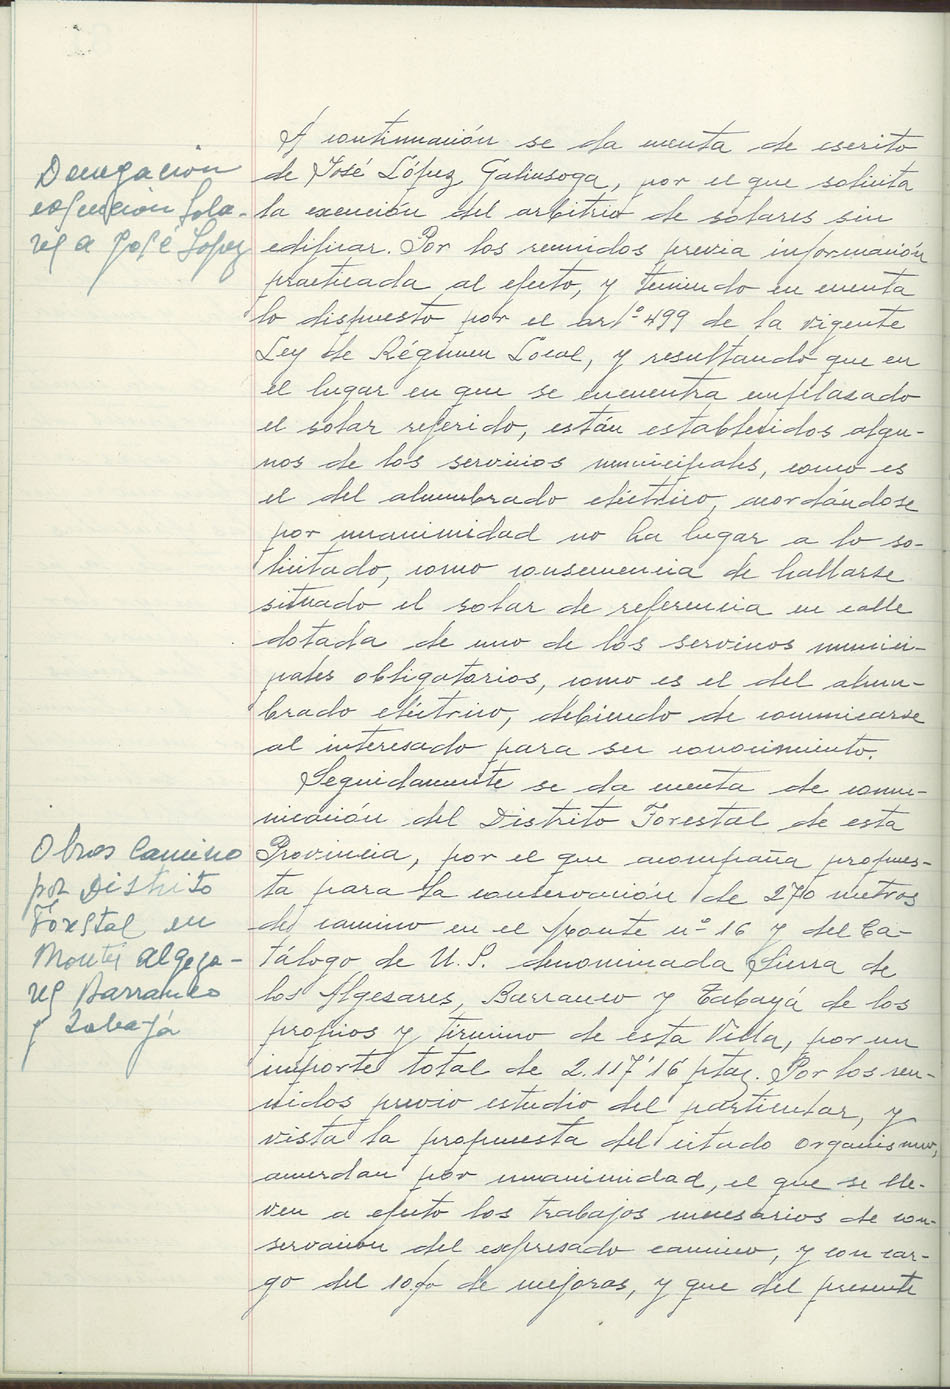 Denegación
exención sola-
res a José Lopez
A continuación se da cuenta de escrito
de José López Galinsoga, por el que solicita
la exención del arbitrio de solares sin
edificar. Por los reunidos previa información
practicada al efecto, y teniendo en cuenta
lo dispuesto por el artº 499 de la vigente
Ley de Régimen Local, y resultando que en
el lugar en que se encuentra emplazado
el solar referido, están establecidos algu-
nos de los servicios municipales, como es
el del alumbrado eléctrico, acordándose
por unanimidad no ha lugar a lo so-
licitado, como consecuencia de hallarse
situado el solar de referencia en calle
dotada de uno de los servicios munici-
pales obligatorios, como es el del alum-
brado eléctrico, debiendo de comunicarse
al interesado para su conocimiento.
Seguidamente se da cuenta de comu-
nicación del Distrito Forestal de esta
Obras Camino
por Distrito
Forestal en
Montes Algeza-
res Barranco
y Tabayá
Provincia, por el que acompaña propues-
ta para la conservación de 270 metros
del camino en el Monte nº 16 y del Ca-
tálogo de U.P. denominada Sierra de
los Algesares, Barranco y Tabayá de los
propios y término de esta Villa, por un
importe total de 2.117'16 ptas. Por los reu-
nidos previo estudio del particular, y
vista la propuesta del citado organismo,
acuerdan por unanimidad, el que se lle-
ven a efecto los trabajos necesarios de con-
servación del expresado camino, y con car-
go del 10% de mejoras, y que del presente